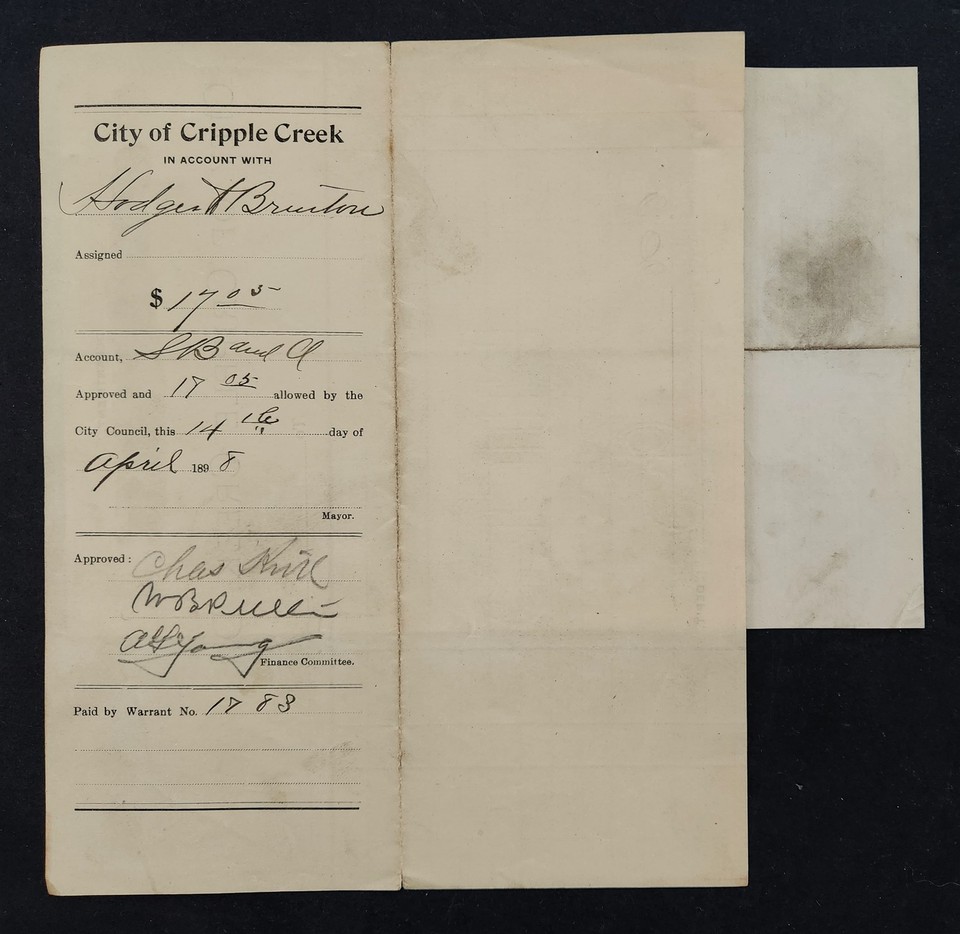 City of Cripple Creek
IN ACCOUNT WITH
Assigned
$ 17 05
Account, S B and A
Approved and 17 05 allowed by the
City Council, this 14 th day of
April 1898
Mayor.
Approved: Chas
Young
Finance Committee.
Paid by Warrant No. 1783